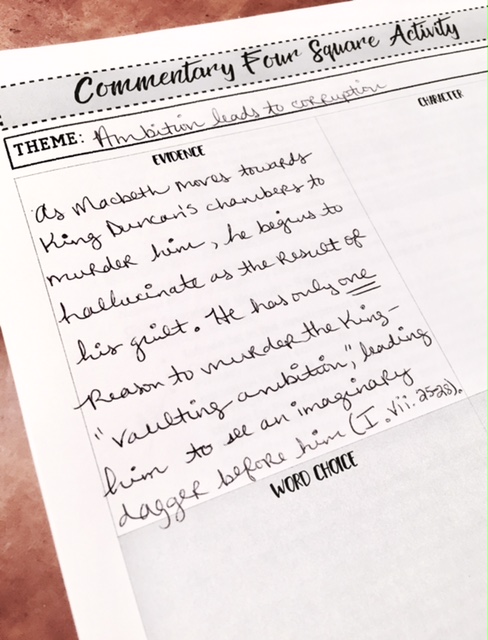 Commentary Four Square Activity
THEME: Ambition leads to corruption
EVIDENCE
As Macbeth moves towards
King Duncan's chambers to
murder him, he begins to
hallucinate as the result of
his guilt. He has only one
reason to murder the King–
"vaulting ambition," leading
him to see an imaginary
dagger before him (I.vii.25-28).
CHARACTER
WORD CHOICE